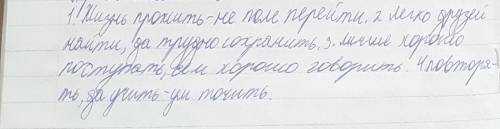 1. Жизнь прожить-не поле перейти, 2 легко друзей
найти, да трудно сохранить, 3. лучше хорошо
поступать, чем хорошо говорить. 4 повторя-
ть, да учить-ум точить.